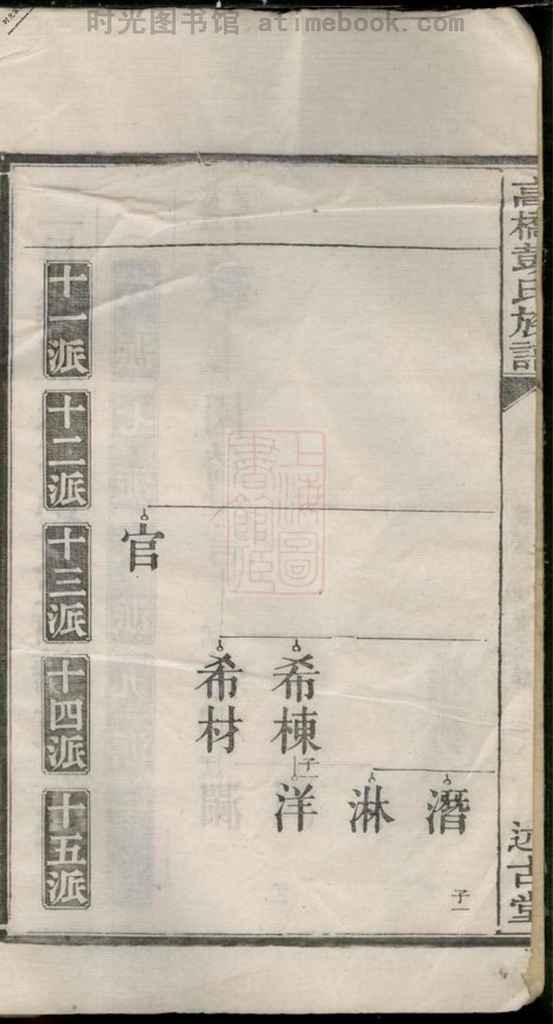 时光图书馆 atimebook.com
高橋彭氏族譜
述古堂
十一派
十二派
十三派
十四派
十五派
潛
子一
淋
希棟
子一
洋
希材
官
上海圖
書館藏